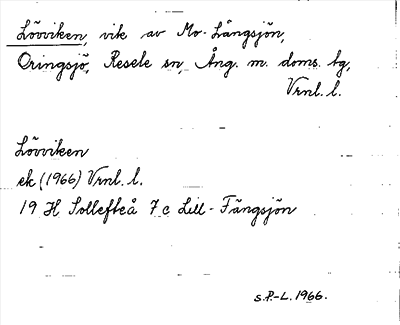 Lövviken, vik av Mo-Långsjön,
Oringsjö, Resele sn, Ång. m. doms. tg,
Vrnl. l.
Lövviken
ek (1966) Vrnl. l.
19 H Sollefteå 7 c Lill-Fängsjön
S.P.-L. 1966.